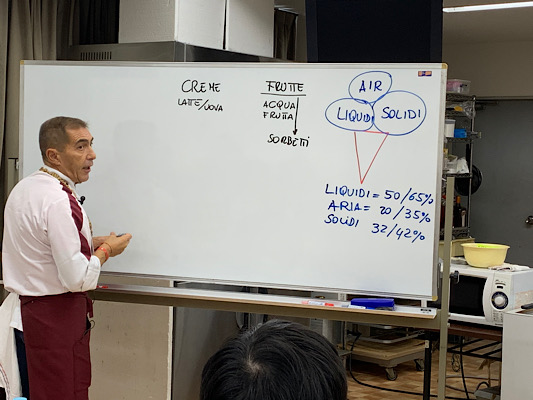 CREME
LATTE/UOVA
FRUTTE
ACQUA
FRUTTA
SORBETTI
AIR
LIQUIDI
SOLIDI
LIQUIDI = 50/65%
ARIA = 20/35%
SOLIDI 32/42%